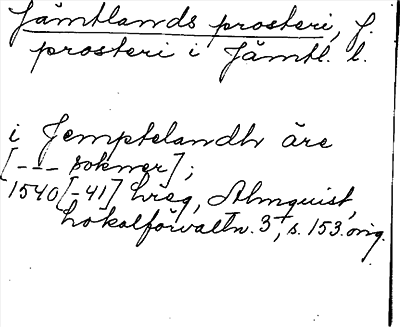 Jämtlands prosteri, f.
prosteri i Jämtl. l.
i Jemptelandh äre
[--- sokner];
1540[-41] hreg, Almquist,
Lokalförvaltn. 3, s. 153. orig.